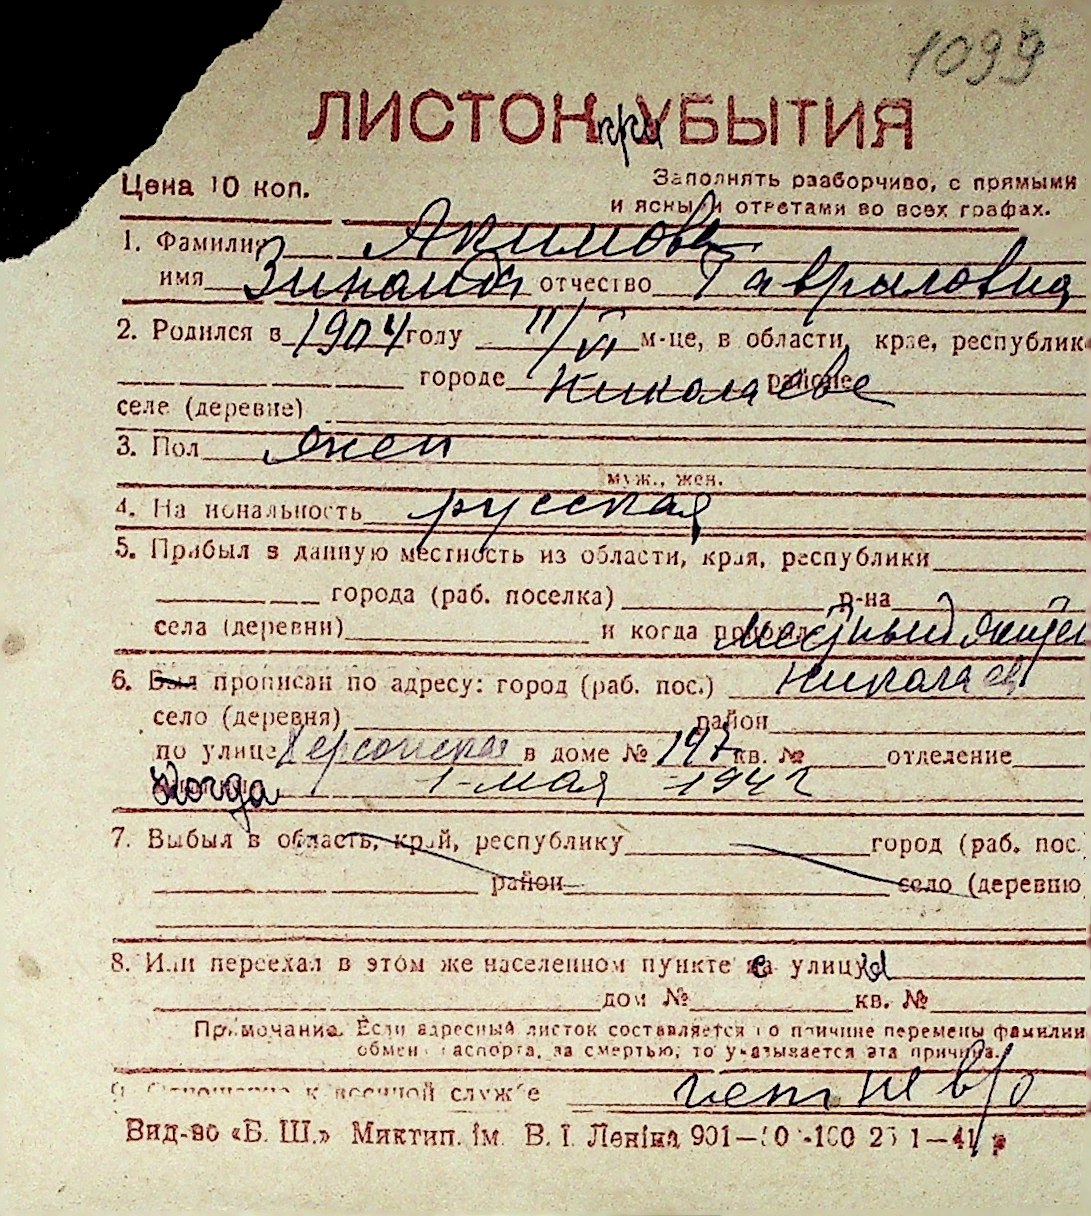 1099
ЛИСТОК приУБЫТИЯ
Цена 10 коп.
Заполнять разборчиво, с прямыми
и ясными ответами во всех графах.
1. Фамилия Якимова
имя Зинаида отчество Гавриловна
2. Родился в 1904 году 11/VI м-це, в области, крае, республик
городе Николаеве районе
селе (деревне)
3. Пол жен
муж., жен.
4. На иональность русская
5. Прибыл в данную местность из области, края, республики
города (раб. поселка) р-на
села (деревни) и когда прибыл местный
6. Был прописан по адресу: город (раб. пос.) Николаев
село (деревня) район
по улице Херсонская в доме № 197 кв. № отделение
Когда 1 мая 1942
7. Выбыл в область, край, республику город (раб. пос.
район село (деревню
8. Или переехал в этом же населенном пункте с улицы
дом № кв. №
Примечание. Если адресный листок составляется по причине перемены фамилии
обмен паспорта, за смертью, то указывается эта причина.
9. Отношение к военной службе нет не в/о
Вид-во «Б. Ш.» Миктип. ім. В. І. Леніна 901—